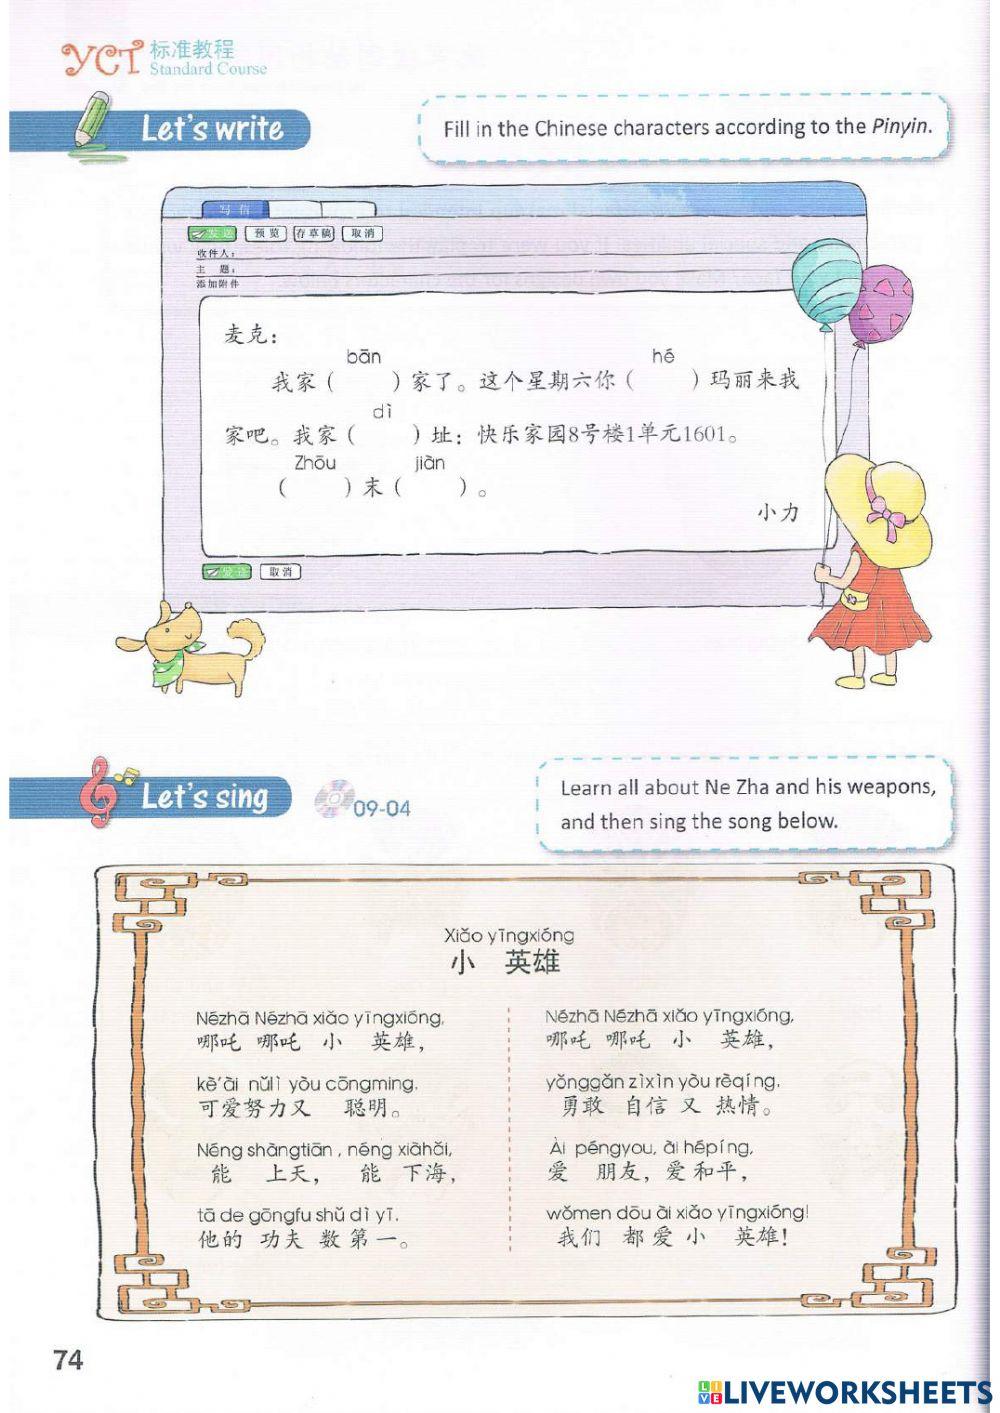 YCT 标准教程
Standard Course
Let's write
Fill in the Chinese characters according to the Pinyin.
写 信
发送 预览 存草稿 取消
收件人：
主 题：
添加附件
麦克：
bān hé
我家（ ）家了。这个星期六你（ ）玛丽来我
dì
家吧。我家（ ）址：快乐家园8号楼1单元1601。
Zhōu jiàn
（ ）末（ ）。
小力
发送 取消
Let's sing
09-04
Learn all about Ne Zha and his weapons,
and then sing the song below.
Xiǎo yīngxióng
小 英雄
Nézhā Nézhā xiǎo yīngxióng,
哪吒 哪吒 小 英雄，
kě'ài nǔlì yòu cōngming.
可爱努力又 聪明。
Néng shàngtiān, néng xiàhǎi,
能 上天， 能 下海，
tā de gōngfu shǔ dì yī.
他的 功夫 数 第 一。
Nézhā Nézhā xiǎo yīngxióng,
哪吒 哪吒 小 英雄，
yǒnggǎn zìxìn yòu rèqíng.
勇敢 自信 又 热情。
Ài péngyou, ài hépíng,
爱 朋友，爱 和平，
wǒmen dōu ài xiǎo yīngxióng!
我们 都 爱 小 英雄！
74
LIVEWORKSHEETS